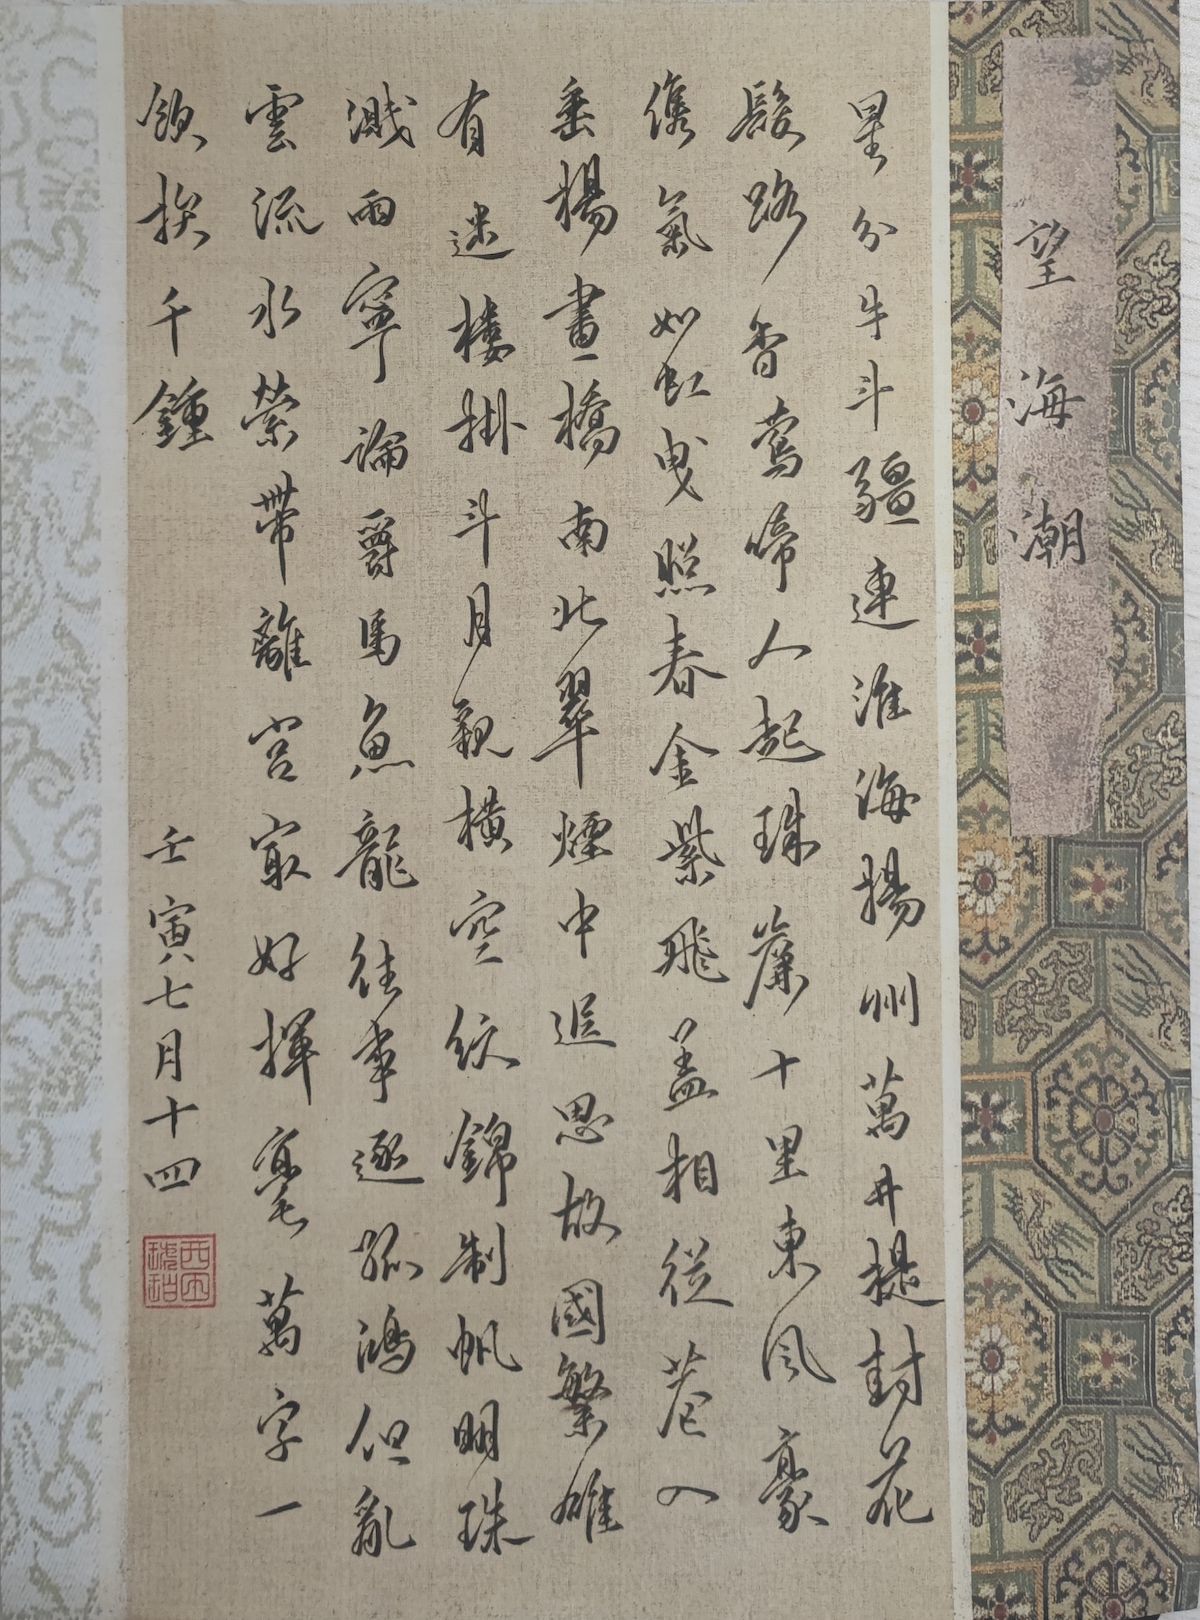 望海潮
星分牛斗疆連淮海揚州萬井提封花
發路香鶯啼人起珠簾十里東風豪
儁氣如虹曳照春金紫飛蓋相從巷入
垂楊畫橋南北翠煙中追思故國繁雄
有迷樓掛斗月觀橫空紋錦制帆明珠
濺雨寧論爵馬魚龍往事逐孤鴻但亂
雲流水縈帶離宮最好揮毫萬字一
飲拚千鍾
壬寅七月十四